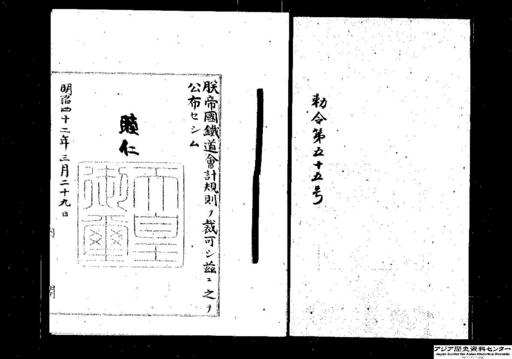 勅令第五十五号
朕帝國鐵道會計規則ヲ裁可シ茲ニ之ヲ
公布セシム
睦仁
天皇
御璽
明治四十二年三月二十九日
内閣
アジア歴史資料センター
Japan Center for Asian Historical Records